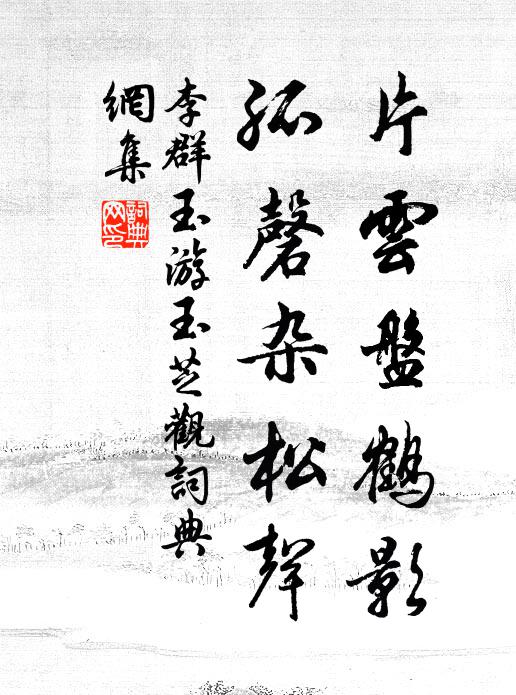 片雲盤鶴影
孤磬杂松聲
李群玉游玉芝觀詞典
網集
詞典網印